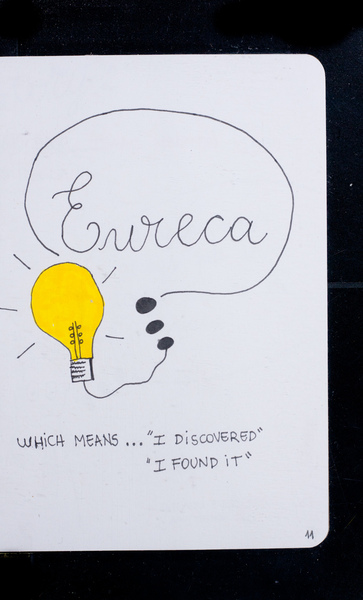 Eureca
WHICH MEANS... "I DISCOVERED"
"I FOUND IT"
11